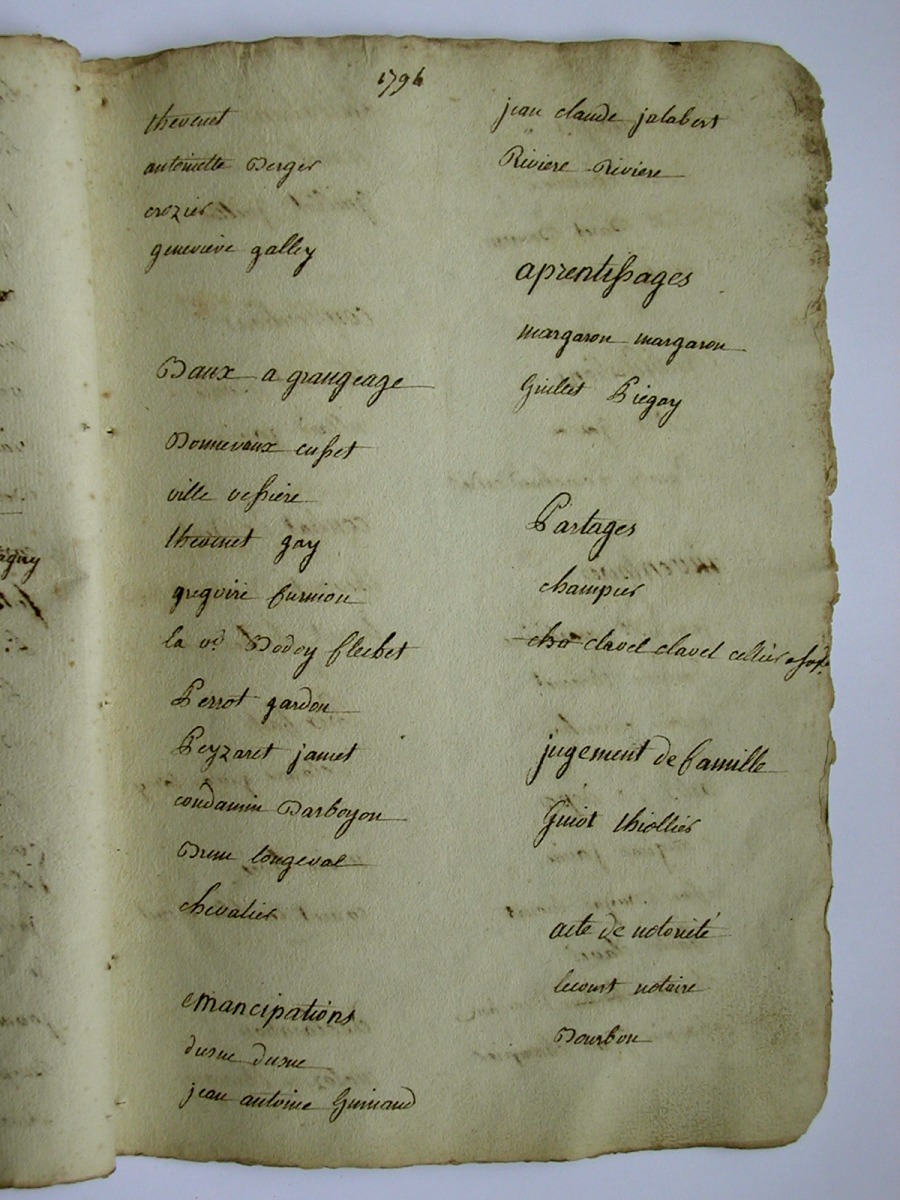 1794
thevenet
antoinette Berger
crozier
genevieve galley
Baux a grangeage
Bonnevaux cusset
ville vessiere
thevenet gay
gregoire furnion
la ve Dodoy flechet
Perrot gardon
Peyzaret jamet
condamin Darboyon
Brun longeval
chevalier
emancipations
jean antoine Guinand
jean claude jalabert
Riviere Riviere
aprentissages
margaron margaron
Guillet Piegay
Partages
champier
clavel clavel cellier
jugement de famille
Guiot thiollier
acte de notorieté
lecourt notaire
Bourbon